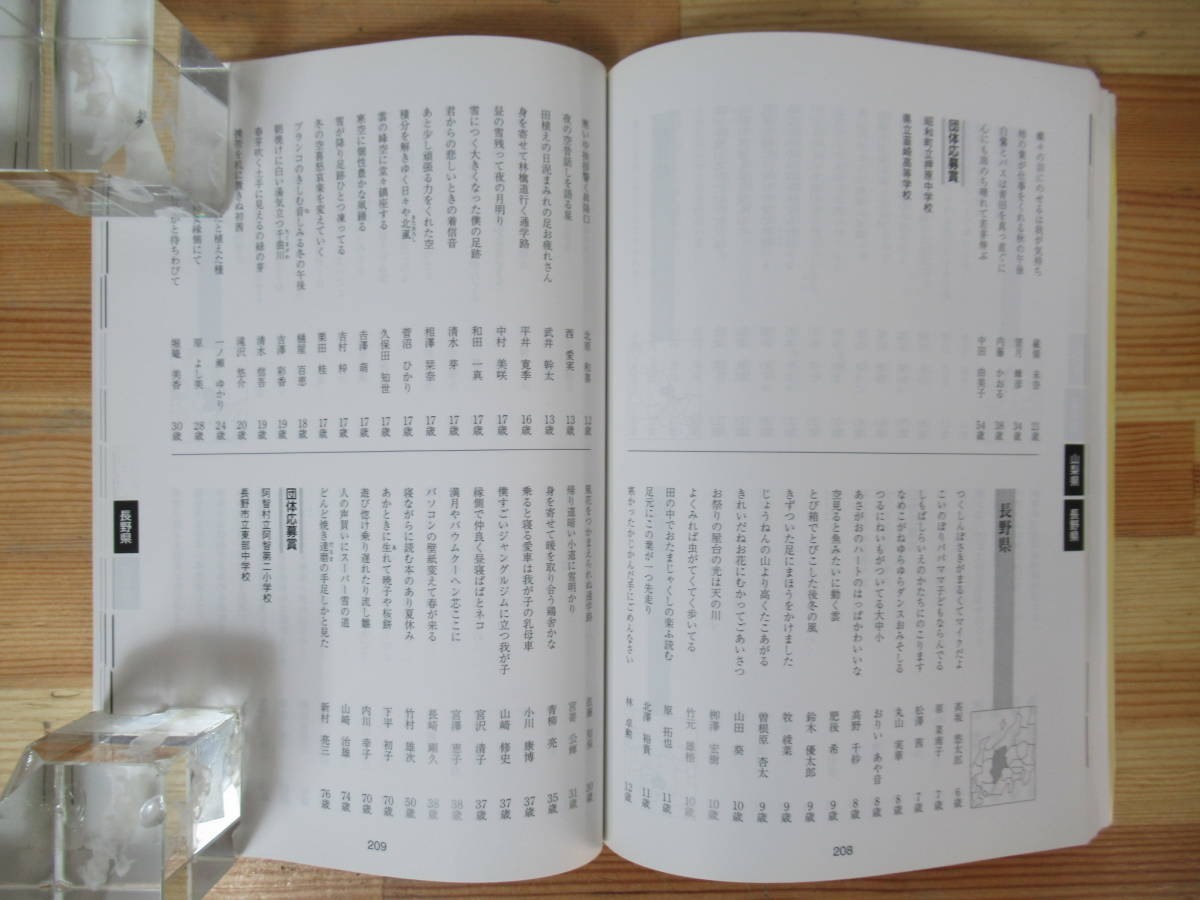 蝶々の羽にのせるは我が気持ち
柿の葉が仕事をくれる秋の午後 望月 峰彦 34歳
白鷺とバスは青田を真っ直ぐに 内藤 かおる 38歳
心にも雨のち晴れて若菜摘ぶ 中田 由美子 54歳
団体応募賞
昭和町立押原中学校
県立韮崎高等学校
山梨県
長野県
長野県
つくしんぼさきがまるくてマイクだよ 高坂 悠太郎 6歳
こいのぼりパパママ子どもならんでる 原 菜穂子 7歳
しもばしらいえのかたちにのこります 松澤 茜 7歳
なめこがゆらゆらダンスおみそしる 丸山 実華 8歳
つるにねいもがついてる大中小 おりい あや音 8歳
あさがおのハートのはっぱかわいいな 高野 千紗 8歳
空見ると魚みたいに動く雲 肥後 希 9歳
とび箱でとびこした後冬の風 鈴木 優太郎 9歳
きずついた足にまほうをかけました 牧 綾菜 9歳
じょうねんの山より高くたこあがる 曽根原 杏太 9歳
きれいだねお花にむかってごあいさつ 山田 葵 10歳
お祭りの屋台の光は天の川 栁澤 宏樹 10歳
よくみれば虫がてくてく歩いてる 竹元 雄悟 10歳
田の中でおたまじゃくしの楽ふ読む 原 拓也 11歳
足元にこの葉が一つ先走り 北澤 裕貴 11歳
寒かったかじかんだ手にごめんなさい 林 卓勲 12歳
208
寒い中後援響く真陽口 北原 和喜 12歳
夜の空昔話しを語る星 西 愛実 13歳
田植えの日泥まみれの足お疲れさん 武井 幹太 13歳
身を寄せて林檎道行く通学路 平井 寛季 16歳
昼の雪残って夜の月明り 中村 美咲 17歳
雪につく大きくなった僕の足跡 和田 一真 17歳
君からの悲しいときの着信音 清水 芽 17歳
あと少し頑張る力をくれた空 相澤 栞奈 17歳
積分を解きゆく日々や北颪 菅沼 ひかり 17歳
雲の峰空に堂々鎮座する 久保田 知世 17歳
寒空に個性豊かな凧踊る 吉澤 萌 17歳
雪が降り足跡ひとつ凍ってる 吉村 梓 17歳
冬の空喜怒哀楽を変えていく 栗田 桂 17歳
ブランコのきしむ音しみる冬の午後 樋屋 百恵 18歳
朝焼けに白い湯気立つ千曲川 吉澤 彩香 19歳
春芽吹く土手に見えるの緑の芽 清水 信吾 19歳
機雲を机に置きぬ初茜 滝沢 悠介 20歳
と植えた種 一ノ瀬 ゆかり 24歳
な縁側にて 原 よし美 28歳
かと待ちわびて 堀篭 美香 30歳
風花をつかまえられぬ通学路 佐藤 30歳
帰り道暗い小道に雪明かり 宮嵜 公輝 31歳
身を寄せて暖を取り合う鶏舎かな 青柳 亮 35歳
乗ると寝る愛車は我が子の乳母車 小川 康博 37歳
僕すごいジャングルジムに立つ我が子 山崎 修史 37歳
縁側で仲良く昼寝ばばとネコ 宮沢 清子 37歳
満月やバウムクーヘン芯ここに 宮澤 恵子 38歳
パソコンの壁紙変えて春が来る 長崎 剛久 38歳
寝ながらに読む本のあり夏休み 竹村 雄次 50歳
あかときに生れて曉子や桜餅 下平 初子 70歳
遊び惚け乗り遅れたり流し雛 内川 幸子 70歳
人の声賀いにスーパー雪の道 山崎 治雄 74歳
どんど焼き達磨の手足しかと見た 新村 亮三 76歳
団体応募賞
阿智村立阿智第二小学校
長野市立東部中学校
長野県
209